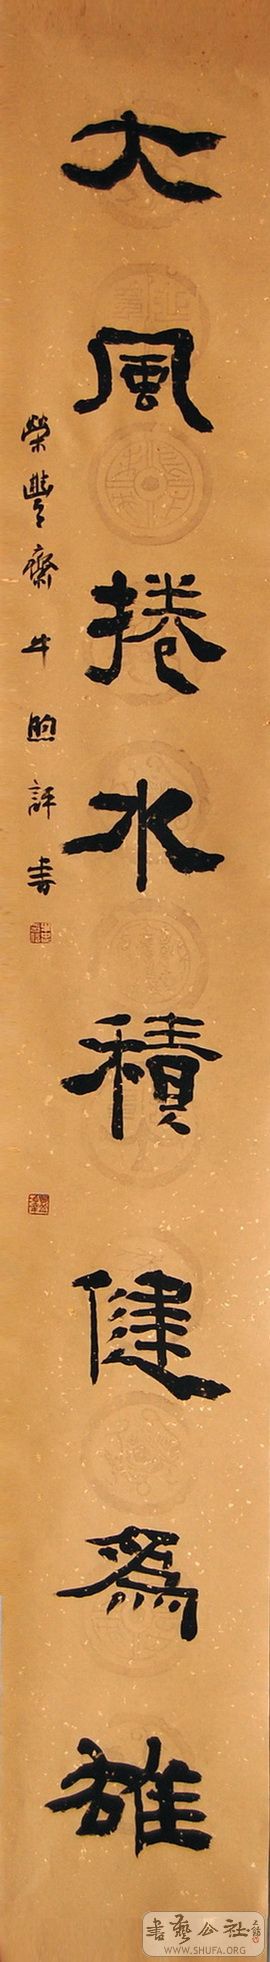 大風捲水積健為雄
榮豐齋牛煦評書
書藝公社
WWW.SHUFA.ORG